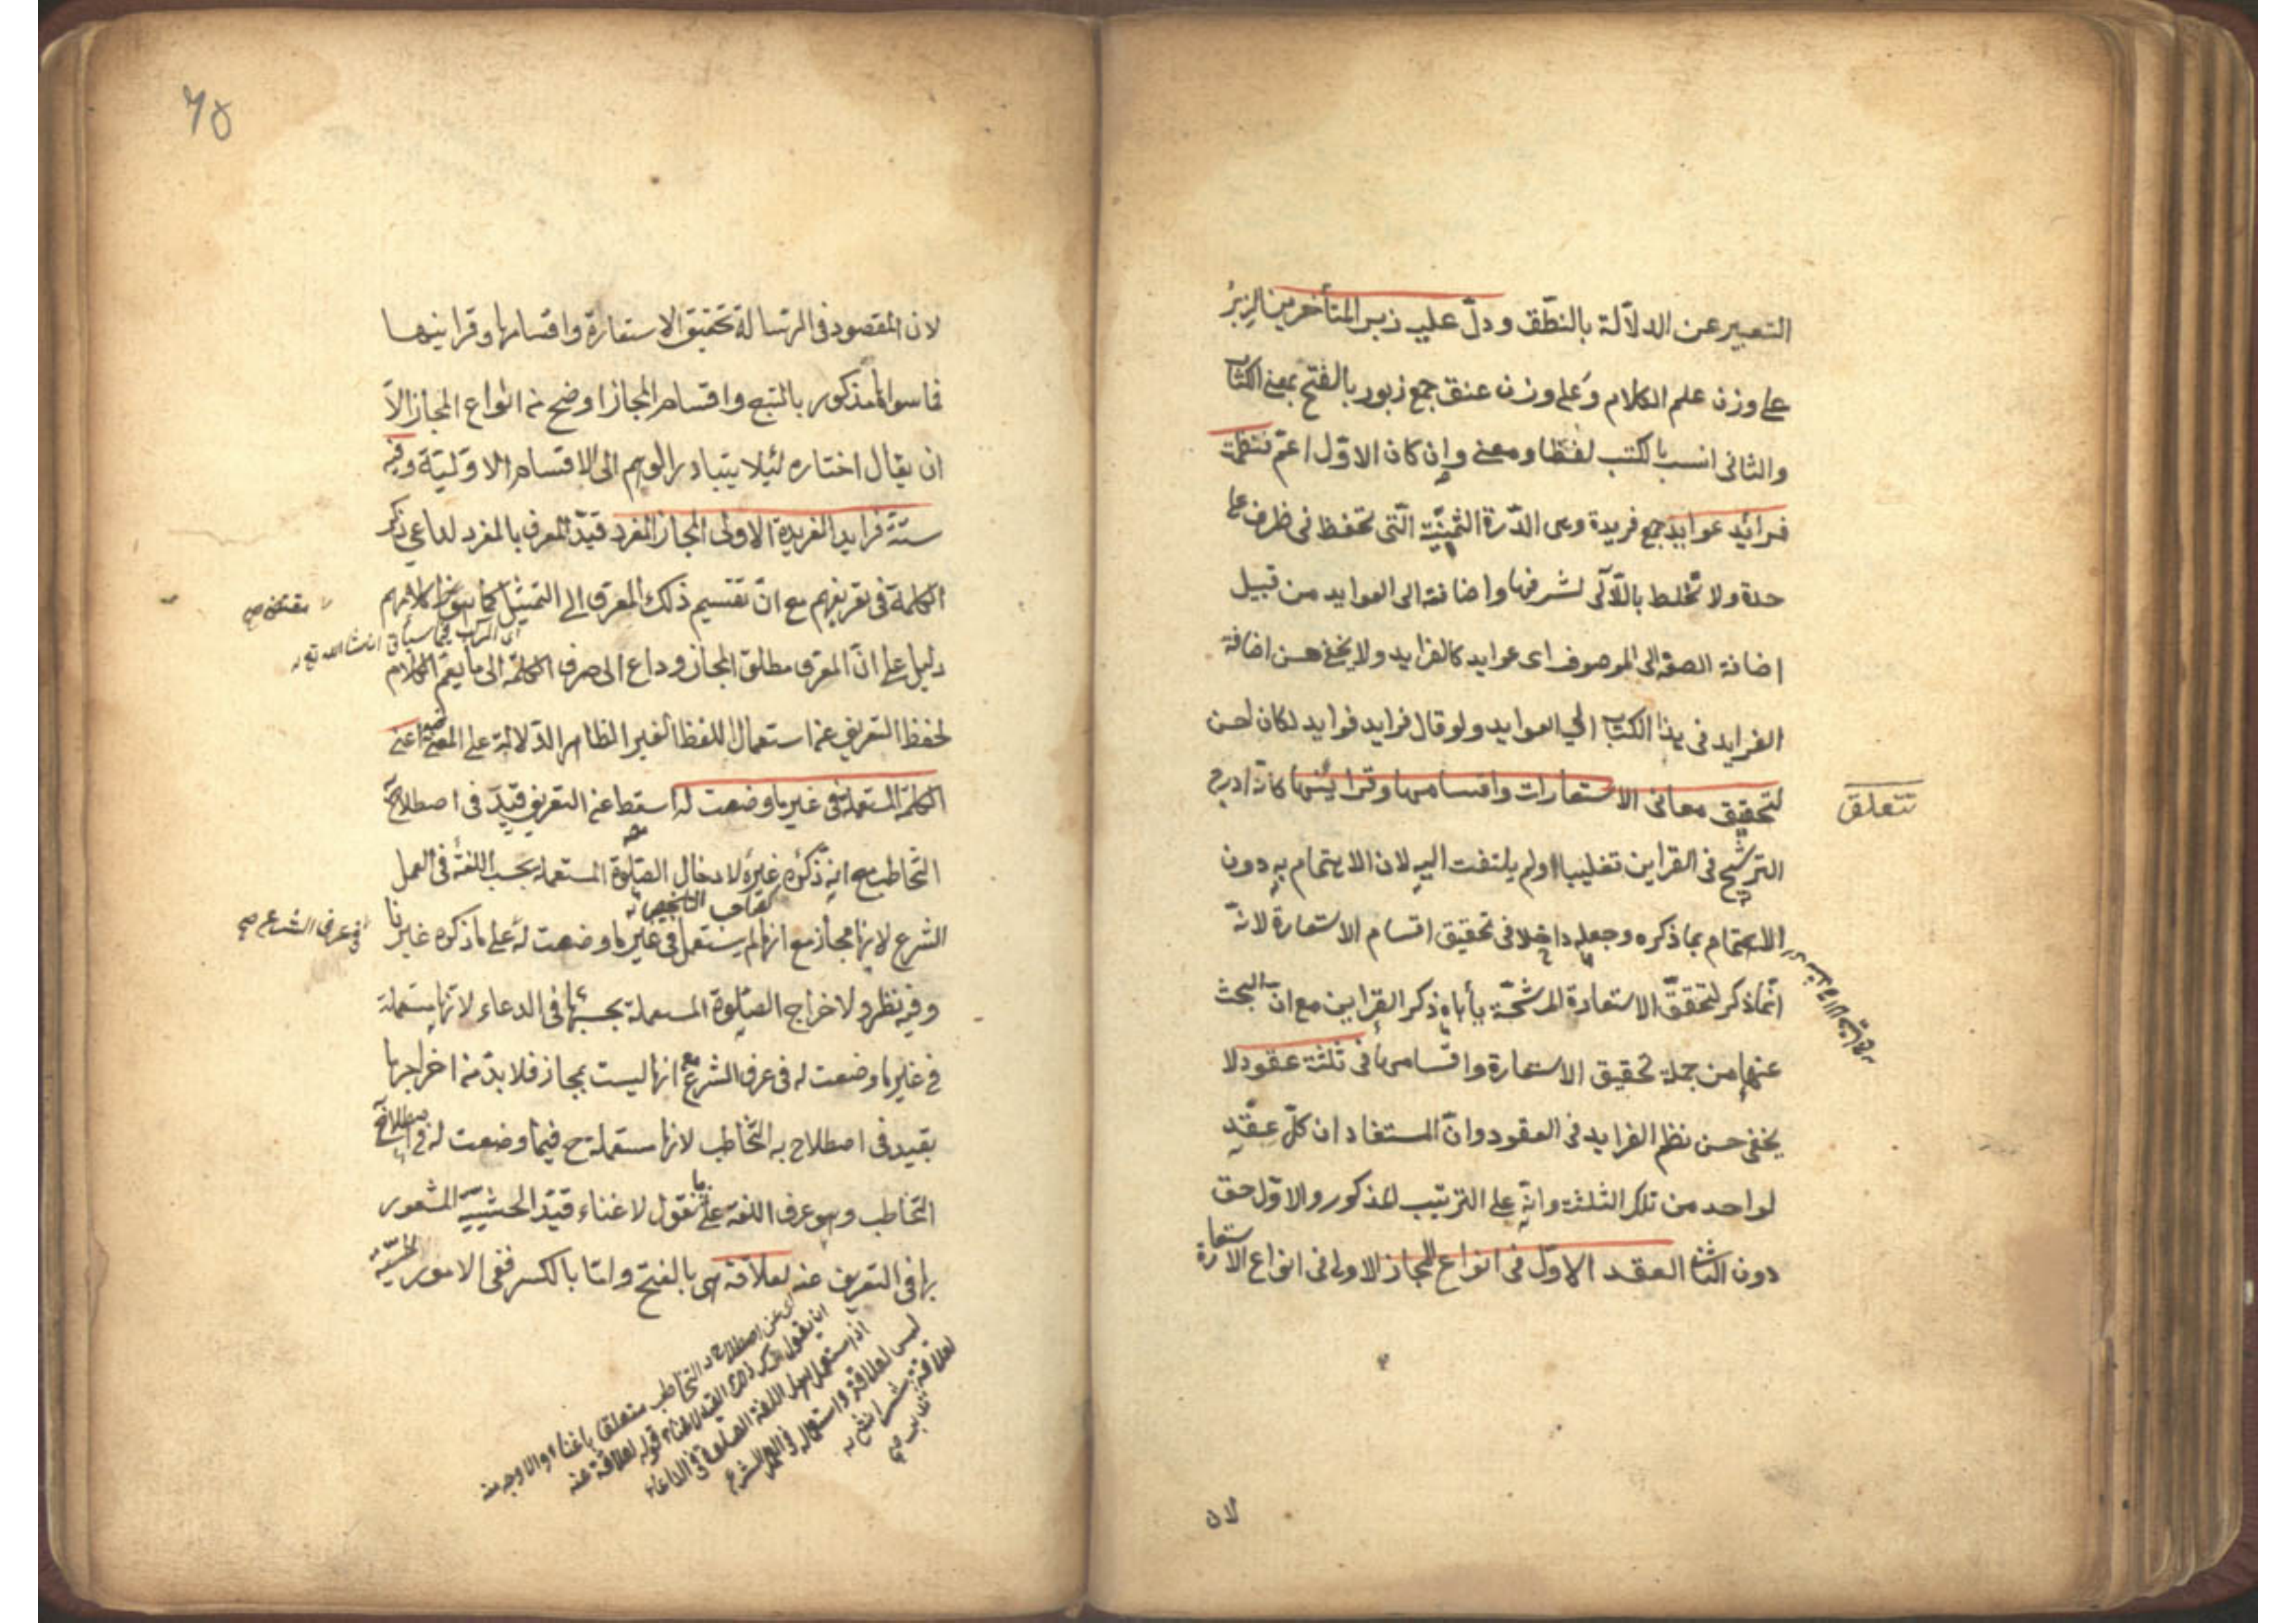 التعبير عن الدلالة بالنطق ودلّ عليه زبر المتأخرين الزبر
على وزن علم الكلام وعلى وزن عنق جمع زبور بالفتح بمعنى الكتاب
والثانى انسب بالكتب لفظا ومعنى وان كان الاوّل اعمّ فنظمت
فرائد عوايد جمع فريدة وهى الدّرة الثمينة الّتى تحفظ فى ظرف على
حدة ولا تخلط باللآلى لشرفها واضافته الى العوايد من قبيل
اضافة الصفة الى الموصوف اى عوايد كالفرايد ولا يخفى حسن اضافة
الفرايد فى هذا الكتاب الى العوايد ولو قال فرايد فوايد لكان احسن
لتحقيق معانى الاستعارات واقسامها وقراينها كانّه ادرج
تتعلق
الترشيح فى القراين تغليبا او لم يلتفت اليه لان الاهتمام به دون
الاهتمام بما ذكره وجعله داخلا فى تحقيق اقسام الاستعارة لانّه
انّما ذكر لتحقق الاستعارة المرشحّة يأباه ذكر القراين مع انّ البحث
عنها من جملة تحقيق الاستعارة واقسامها فى ثلثة عقود لا
يخفى حسن نظم الفرايد فى العقود وانّ المستفاد ان كلّ عقد
لواحد من تلك الثلثة وانّه على الترتيب المذكور والاوّل حق
دون الثانى العقد الاوّل فى انواع المجاز الاولى فى انواع الاستعارة
لان
٦٥
لان المقصود فى الرسالة تحقيق الاستعارة واقسامها وقراينها
فما سوا المذكور بالتبع واقسام المجاز اوضح من انواع المجاز الاّ
ان يقال اختاره لئلا يتبادر الوهم الى الاقسام الاوّليّة وفيه
ستّة فرايد الفريدة الاولى المجاز المفرد قيّد المعرف بالمفرد لداعى ذكر
الكلمة فى تعريفهم مع انّ تقسيم ذلك المعرف الى التمثيل كما هو كلامهم
مقتضى صح
اى المركب فيما سيأتى ان شاء الله تع
دليل على انّ المعرف مطلق المجاز وداع الى صرف الكلمة الى ما يعمّ الكلام
لحفظ التعريف عن استعمال اللفظ الغير الظاهر الدّلالة على المعنى اعنى
الكلمة المستعملة فى غير ما وضعت له اسقط عن التعريف قيد فى اصطلاح
التخاطب مع انه ذكره غيره لادخال الصلوة المستعملة بحسب اللغة فى العمل
كصاحب التلخيص
الشرع لانها مجاز مع انها لم يستعمل فى غير ما وضعت له على ما ذكره غيرنا
فى عرف الشرع صح
وفيه نظر ولاخراج الصلوة المستعملة بحسبها فى الدعاء لانها مستعملة
فى غير ما وضعت له فى عرف الشرع مع انها ليست بمجاز فلا بدّ من اخراجها
بقيد فى اصطلاح به التخاطب لانها مستعملة ح فيما وضعت له فى اصطلاح
التخاطب وهو عرف اللغة على ما نقول لاغناء قيد الحيثيّة المشعور
بها فى التعريف عنه لعلاقة هى بالفتح وامّا بالكسر ففى الامور الحسّية